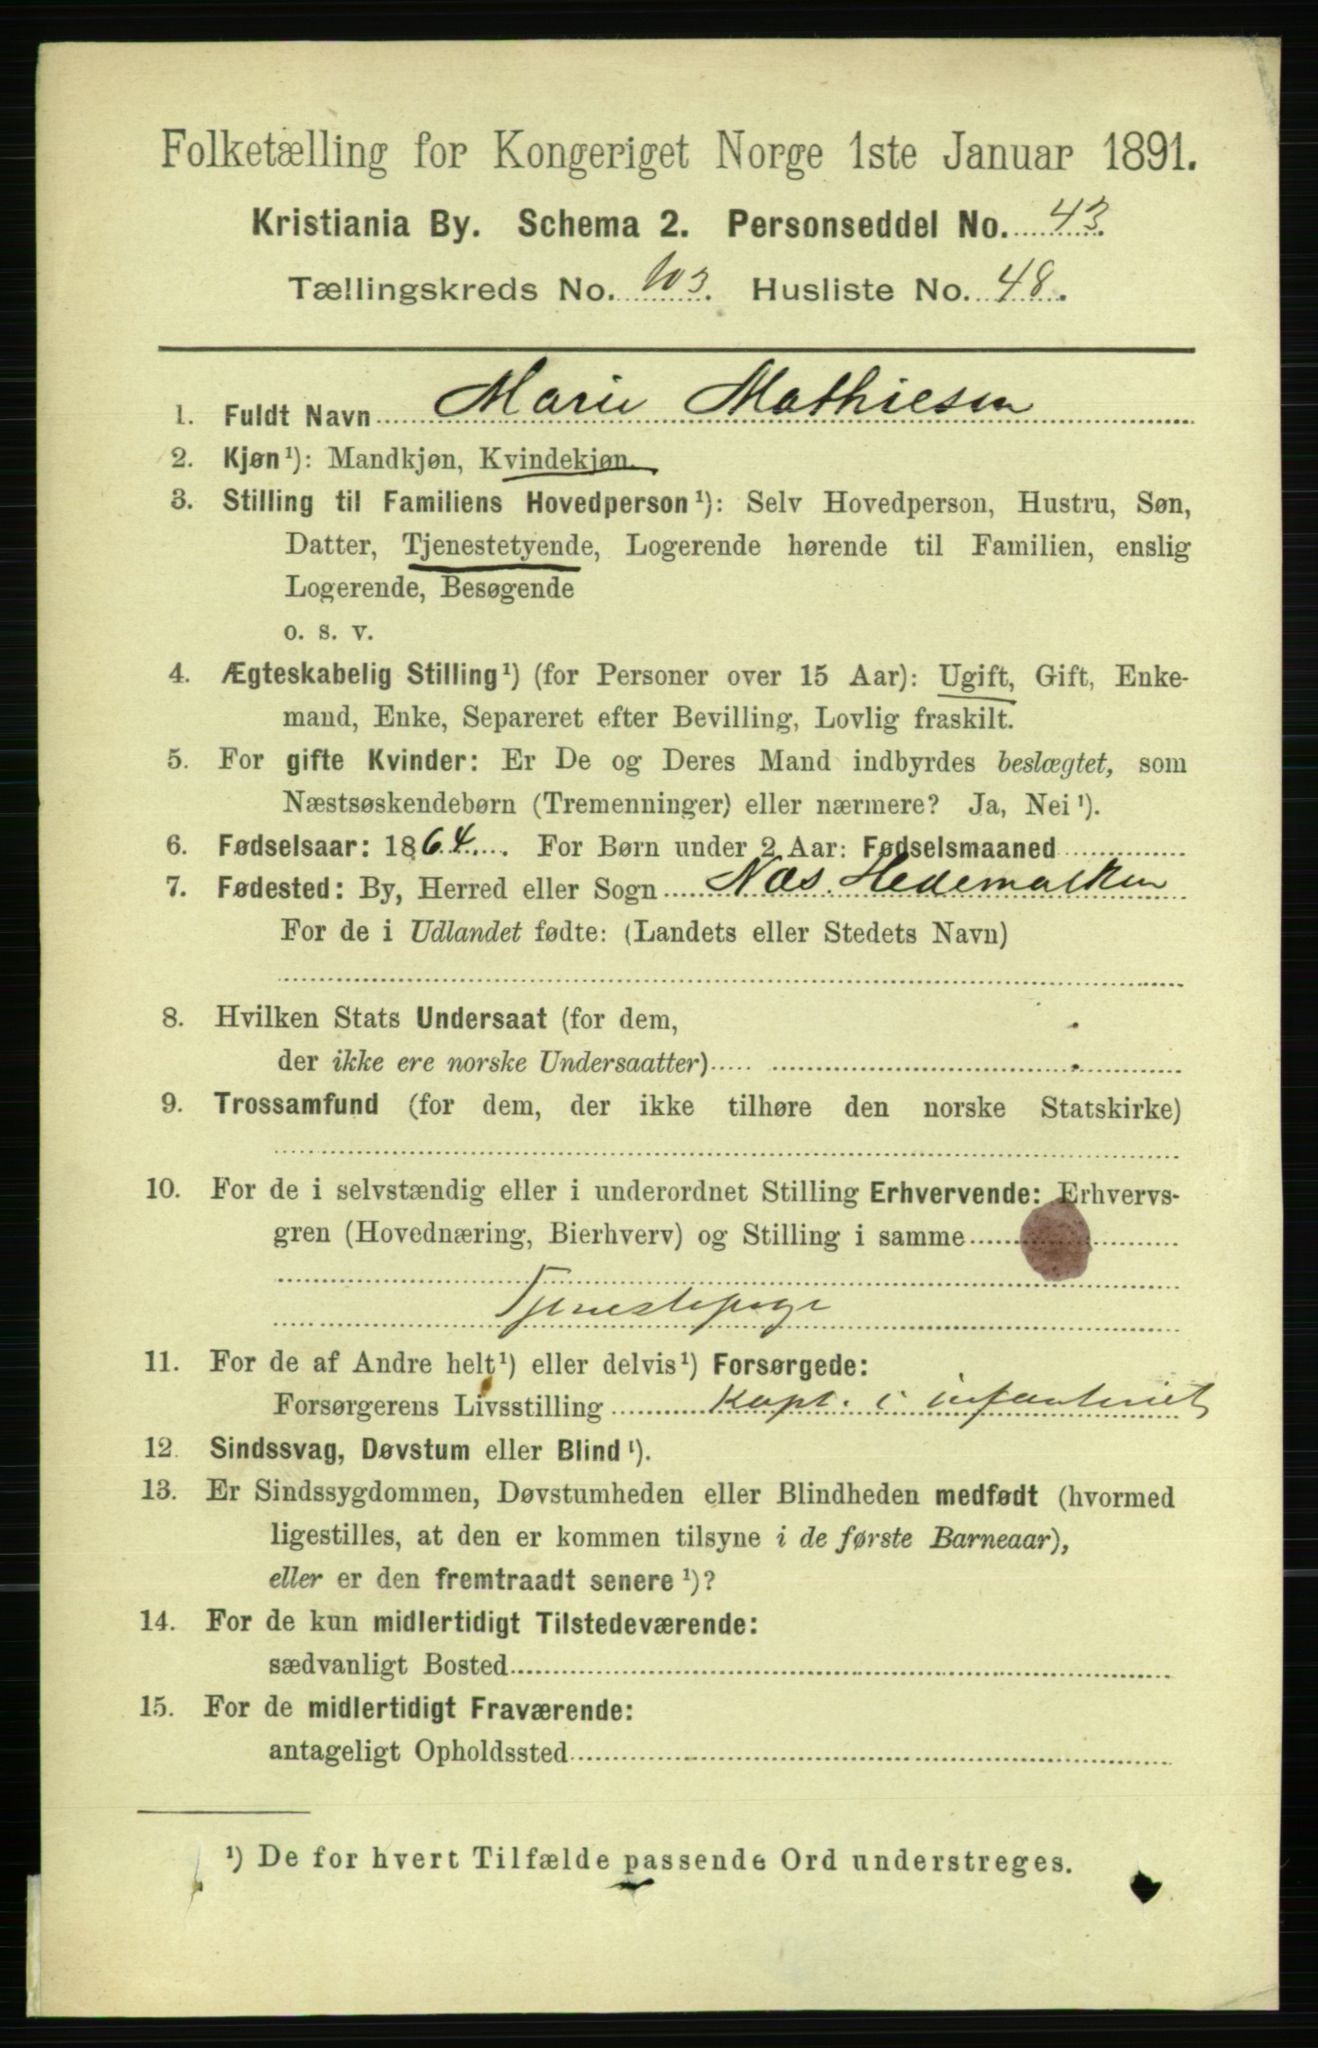 Folketælling for Kongeriget Norge 1ste Januar 1891.
Kristiania By. Schema 2. Personseddel No. 43.
Tællingskreds No. 103. Husliste No. 48.
1. Fuldt Navn Marie Mathiesen
2. Kjøn¹): Mandkjøn, Kvindekjøn.
3. Stilling til Familiens Hovedperson¹): Selv Hovedperson, Hustru, Søn,
Datter, Tjenestetyende, Logerende hørende til Familien, enslig
Logerende, Besøgende
o. s. v.
4. Ægteskabelig Stilling¹) (for Personer over 15 Aar): Ugift, Gift, Enke-
mand, Enke, Separeret efter Bevilling, Lovlig fraskilt.
5. For gifte Kvinder: Er De og Deres Mand indbyrdes beslægtet, som
Næstsøskendebørn (Tremenninger) eller nærmere? Ja, Nei¹).
6. Fødselsaar: 1864. For Børn under 2 Aar: Fødselsmaaned
7. Fødested: By, Herred eller Sogn Næs. Hedemarken
For de i Udlandet fødte: (Landets eller Stedets Navn)
8. Hvilken Stats Undersaat (for dem,
der ikke ere norske Undersaatter)
9. Trossamfund (for dem, der ikke tilhøre den norske Statskirke)
10. For de i selvstændig eller i underordnet Stilling Erhvervende: Erhvervs-
gren (Hovednæring, Bierhverv) og Stilling i samme
Tjenestepige
11. For de af Andre helt¹) eller delvis¹) Forsørgede:
Forsørgerens Livsstilling Kapt. i infanteriet
12. Sindssvag, Døvstum eller Blind¹).
13. Er Sindssygdommen, Døvstumheden eller Blindheden medfødt (hvormed
ligestilles, at den er kommen tilsyne i de første Barneaar),
eller er den fremtraadt senere¹)?
14. For de kun midlertidigt Tilstedeværende:
sædvanligt Bosted
15. For de midlertidigt Fraværende:
antageligt Opholdssted
¹) De for hvert Tilfælde passende Ord understreges.